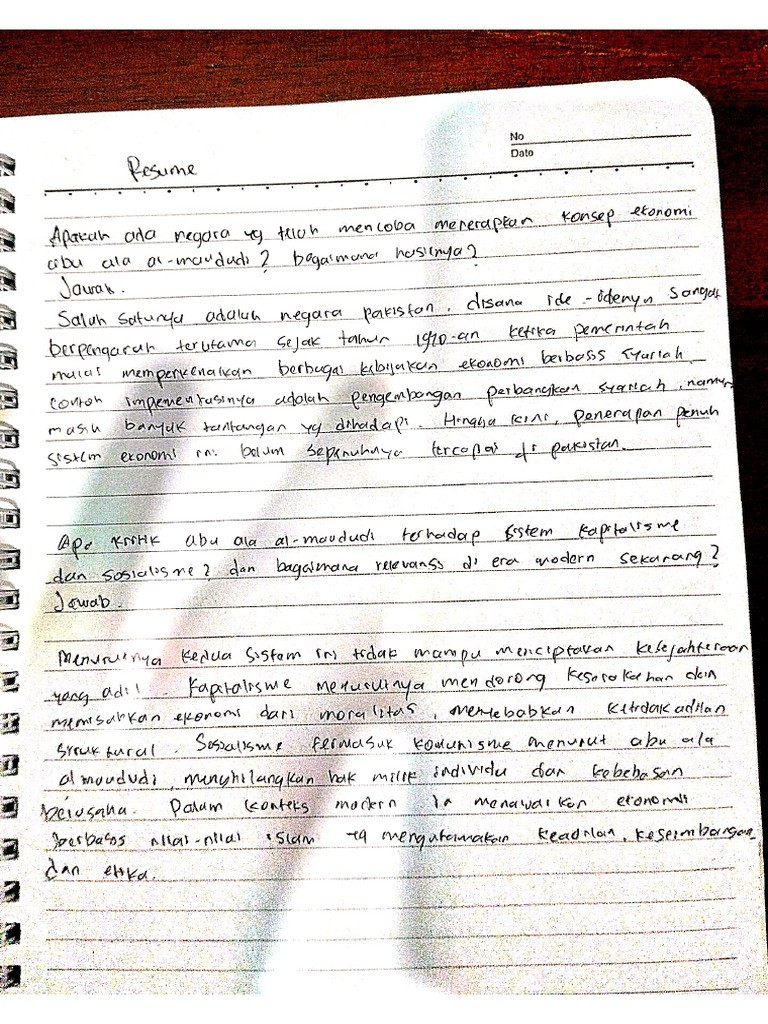 No
Date
Resume
Apakah ada negara yg telah mencoba menerapkan konsep ekonomi
abu ala al-maududi? bagaimana hasilnya?
Jawab.
Salah satunya adalah negara pakistan. disana ide-idenya sangat
berpengaruh terutama sejak tahun 1970-an ketika pemerintah
mulai memperkenalkan berbagai kebijakan ekonomi berbasis syariah.
contoh implementasinya adalah pengembangan perbangkan syariah, namun
masih banyak tantangan yg dihadapi. Hingga kini, penerapan penuh
sistem ekonomi ini belum sepenuhnya tercapai di pakistan.
Apa kritik abu ala al-maududi terhadap sistem kapitalisme
dan sosialisme? dan bagaimana relevansi di era modern sekarang?
Jawab.
Menurutnya kedua sistem ini tidak mampu menciptakan kesejahteraan
yang adil. Kapitalisme menurutnya mendorong keserakahan dan
memisahkan ekonomi dari moralitas, menyebabkan ketidakadilan
struktural. Sosialisme termasuk komunisme menurut abu ala
al maududi, menghilangkan hak milik individu dan kebebasan
berusaha. Dalam konteks modern ia menawarkan ekonomi
berbasis nilai-nilai islam yg mengutamakan keadilan, keseimbangan
dan etika.